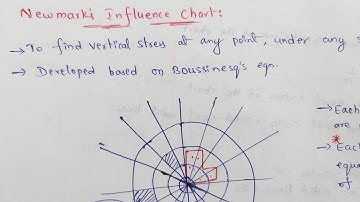 Newmark's Influence Chart:
→ To find vertical stress at any point, under any s
→ Developed based on Boussinesq's eqn.
→ Each
are
* → Each
equa
of